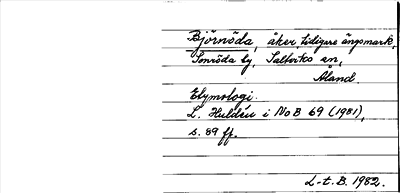 Björnöda, åker tidigare ängsmark,
Sonröda by, Saltviks sn,
Åland.
Etymologi.
L. Huldén i NoB 69 (1981),
s. 89 ff.
L-t. B. 1982.